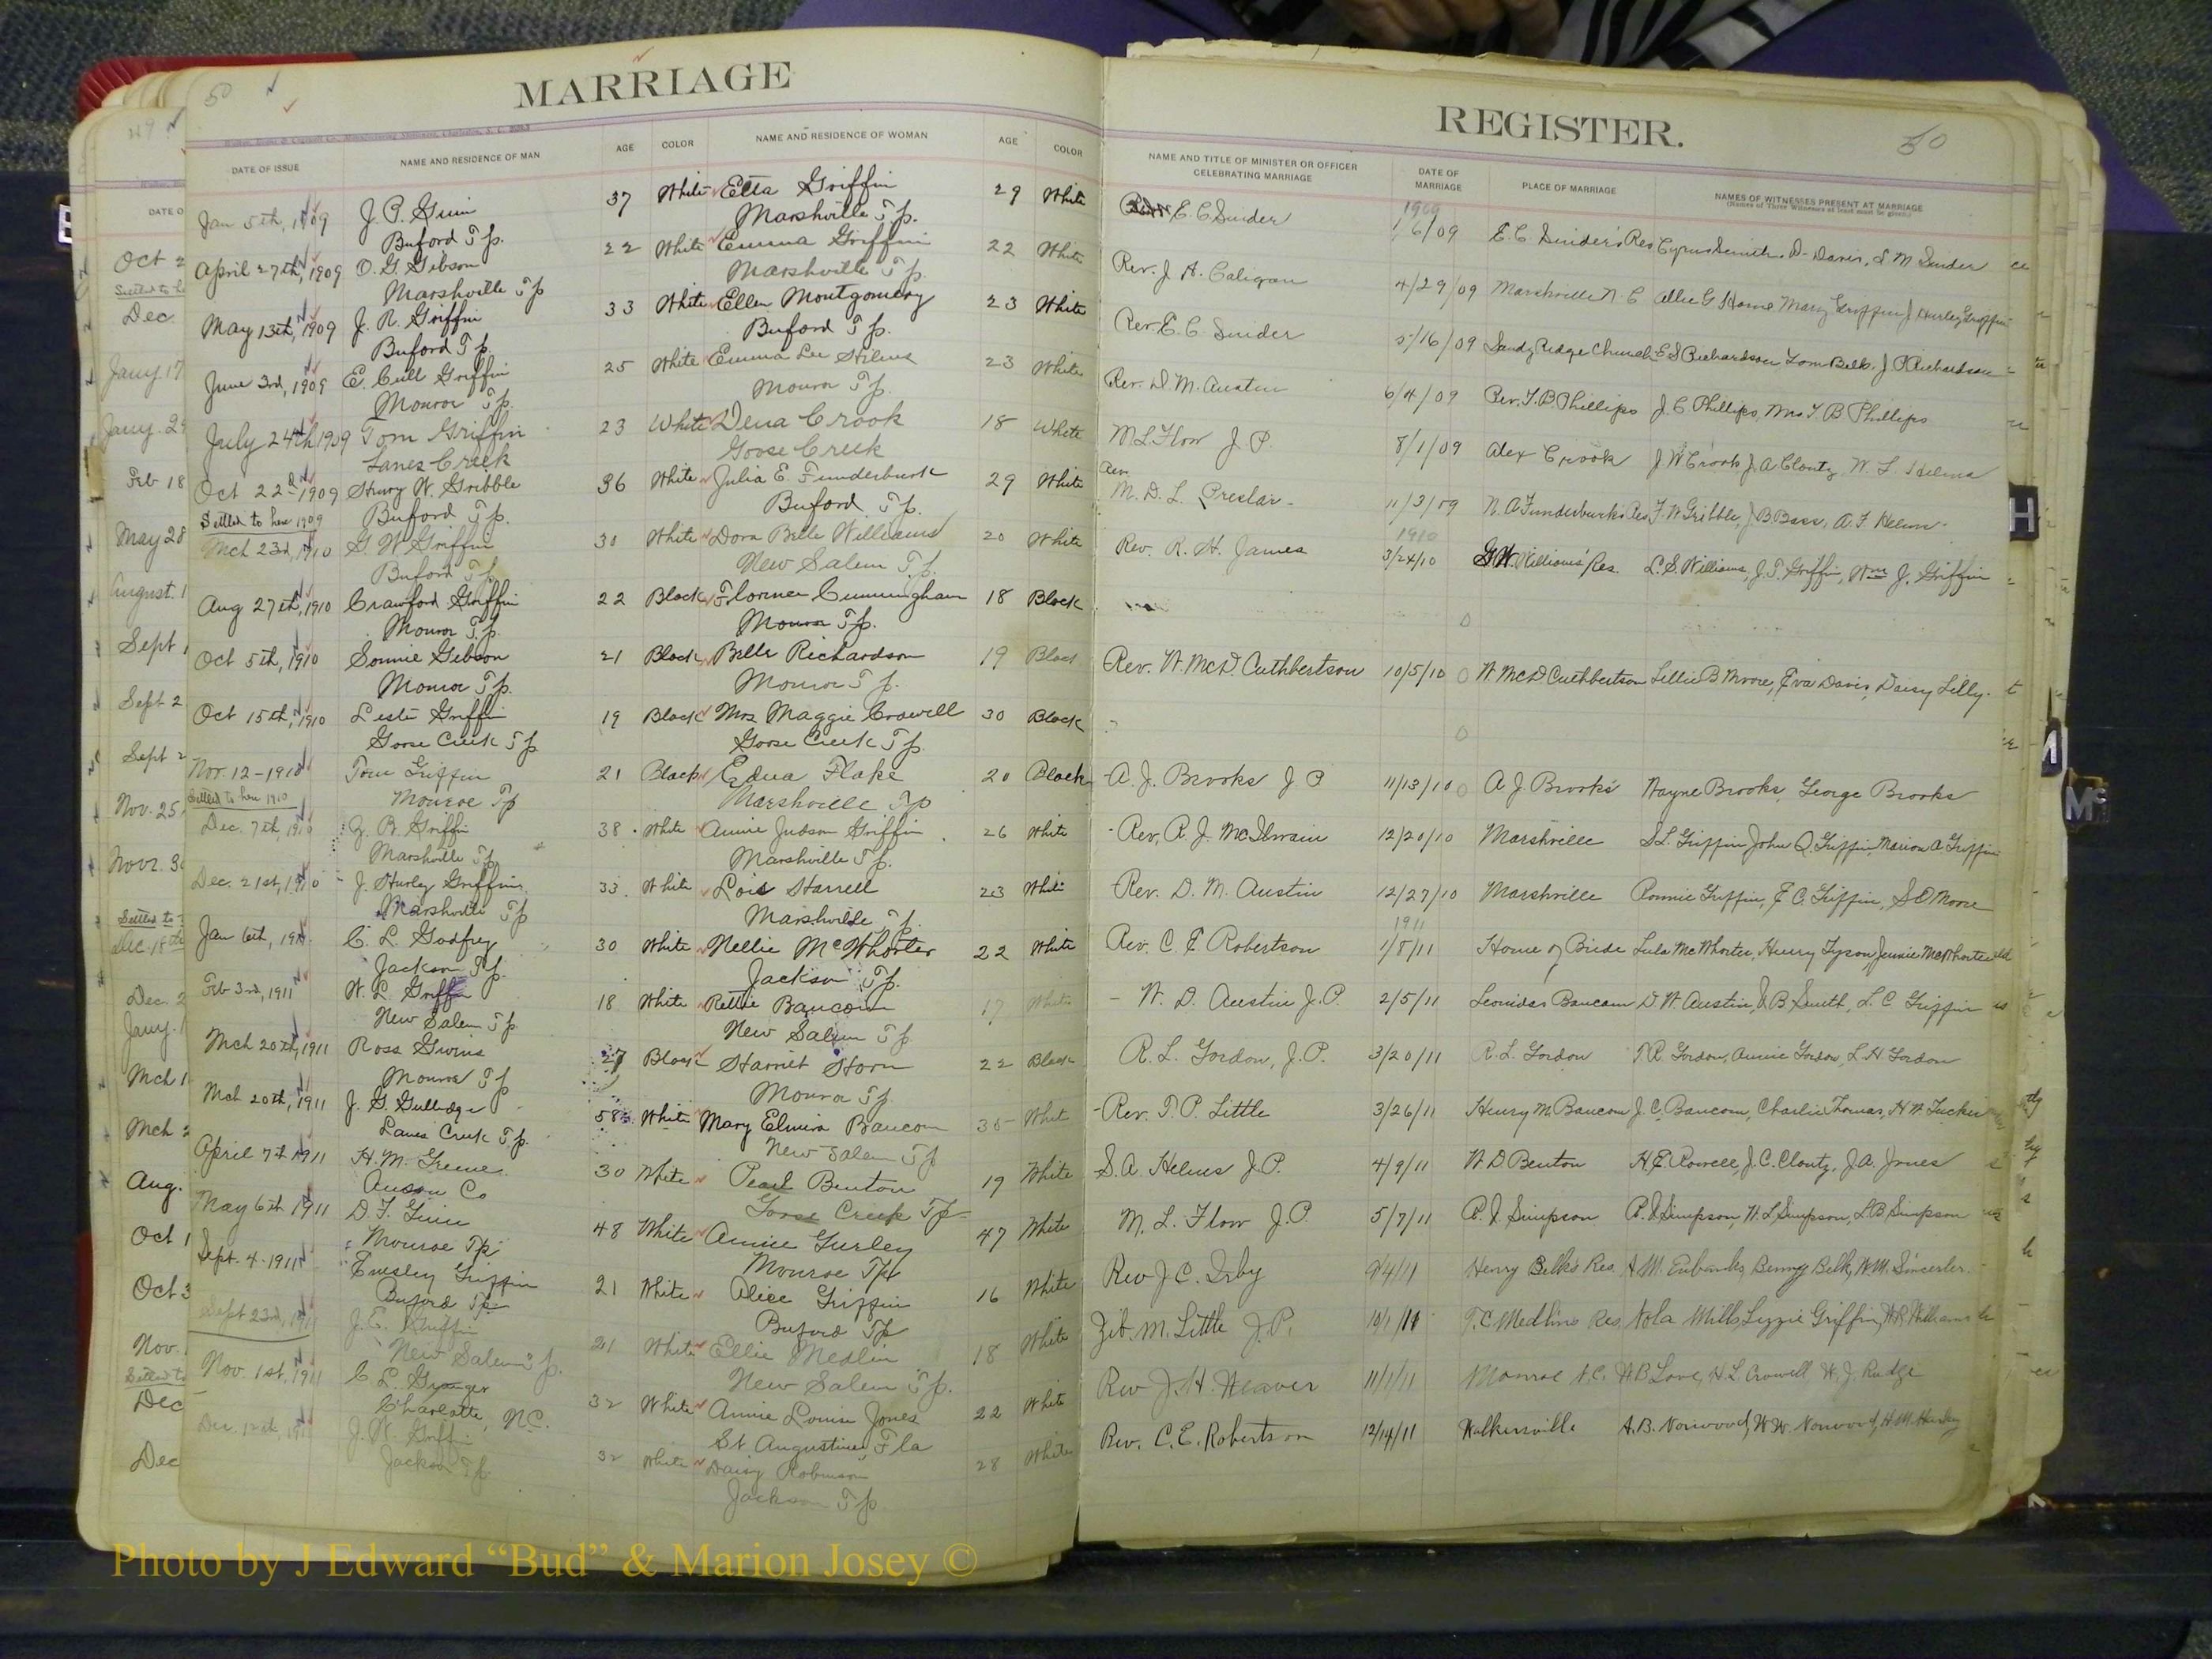 MARRIAGE
REGISTER.
50
50
49
DATE OF ISSUE
NAME AND RESIDENCE OF MAN
AGE
COLOR
NAME AND RESIDENCE OF WOMAN
AGE
COLOR
NAME AND TITLE OF MINISTER OR OFFICER CELEBRATING MARRIAGE
DATE OF MARRIAGE
PLACE OF MARRIAGE
NAMES OF WITNESSES PRESENT AT MARRIAGE
(Names of Three Witnesses at least must be given.)
1909
Jan 5th, 1909 J. P. Guin 37 White Etta Griffin 29 White E. C. Snider 1/6/09 E. C. Snider's Res Cyrus Smith, Davis, S M Snider
Buford Tp. Marshville Tp.
April 27th, 1909 O. G. Gibson 22 White Emma Griffin 22 White Rev. J. A. Caligan 4/29/09 Marshville N C Allie G Horne Mary Griffin J Hurley Griffin
Marshville Tp Marshville Tp.
May 13th, 1909 J. R. Griffin 33 White Ellen Montgomery 23 White Rev. E. C. Snider 5/16/09 Sandy Ridge Church E S Richardson Tom Belk, J P Richardson
Buford Tp. Buford Tp.
June 3rd, 1909 E. Cull Griffin 25 White Emma Lee Helms 23 White Rev. D. M. Austin 6/4/09 Rev. T. B. Phillips J. C Phillips, Mrs T. B Phillips
Monroe Tp. Monroe Tp.
July 24th 1909 Tom Griffin 23 White Dena Crook 18 White M L Flow J. P. 8/1/09 Alex Crook J W Crook J. A Clontz, W. L. Helms
Lanes Creek Goose Creek
Oct 22d 1909 Henry W. Gribble 36 White Julia E. Funderburk 29 White Rev. M. D. L. Preslar 11/3/09 N. A Funderburks Res F. W Gribble, J B Bass, A. F. Helms
Settled to here 1909 Buford Tp. Buford Tp.
1910
Mch 23d, 1910 G. W Griffin 30 White Dora Belle Williams 20 White Rev. R. H. James 3/24/10 G. W. Williams' Res. L. S. Williams, J. T. Griffin, Wm J. Griffin
Buford Tp New Salem Tp.
Aug 27th, 1910 Crawford Griffin 22 Black Florence Cunningham 18 Black
Monroe Tp. Monroe Tp.
Oct 5th, 1910 Sonnie Gibson 21 Black Belle Richardson 19 Black Rev. W. McD. Cuthbertson 10/5/10 W. McD Cuthbertson Lillie B Moore, Eva Davis, Daisy Lilly.
Monroe Tp. Monroe Tp.
Oct 15th, 1910 Griffin 19 Black Mrs Maggie Crowell 30 Black
Goose Creek Tp Goose Creek Tp.
Nov. 12 - 1910 Tom Griffin 21 Black Edna Flake 20 Black A. J. Brooks J P 11/13/10 A J Brooks' Wayne Brooks, George Brooks
Settled to here 1910 Monroe Tp Marshville Tp
Dec. 7th, 1910 Griffin 38 White Annie Judson Griffin 26 White Rev. R. J. McIlwain 12/20/10 Marshville S L. Griffin John Q. Griffin, Marion A Griffin
Marshville Tp Marshville Tp.
Dec. 21st, 1910 J. Hurley Griffin 33 White Lois Harrell 23 White Rev. D. M. Austin 12/27/10 Marshville Griffin, E C. Griffin, S O Moore
Marshville Tp Marshville Tp.
1911
Jan 6th, 1911 C. L. Godfrey 30 White Nellie McWhorter 22 White Rev. C. E Robertson 1/8/11 Home of Bride Lula McWhorter, Henry Tyson, Jennie McWhorter
Jackson Tp. Jackson Tp.
Feb 3rd, 1911 W. L. Griffin 18 White Rettie Baucom 17 White W. D. Austin J. P. 2/5/11 Leonidas Baucom D. W Austin, B Smith, L. C Griffin
New Salem Tp. New Salem Tp
Mch 20th, 1911 Ross Givins 27 Black Harriet Horn 22 Black R. L. Gordon, J. P. 3/20/11 R. L. Gordon Gordon, Annie Gordon, L. H Gordon
Monroe Tp Monroe Tp
Mch 20th, 1911 J. G. Gulledge 58 White Mary Elmira Baucom 35 White Rev. T. P. Little 3/26/11 Henry M. Baucom J. C. Baucom, Charlie Thomas, H W. Tucker
Lanes Creek Tp. New Salem Tp
April 7th 1911 H. M. Greene 30 White Pearl Benton 19 White S. A. Helms J. P. 4/9/11 W D Benton H. E. Rowell, J. C. Clontz, J. A. Jones
Anson Co Goose Creek Tp
May 6th 1911 D. F. Guin 48 White Annie Gurley 47 White M. L. Flow J. P 5/7/11 Simpson Simpson, W. L Simpson, L. B Simpson
Monroe Tp Monroe Tp
Sept. 4 - 1911 Emsley Griffin 21 White Alice Griffin 16 White Rev J. C. Irby 9/4/11 Henry Belk's Res. M. Eubanks, Benny Belk, W. M.
Buford Tp Buford Tp
Sept 23rd, 1911 J. E. Griffin 21 White Ellie Medlin 18 White Zib. M. Little J. P. 10/1/11 T. C Medlin's Res, Nola Mills, Lizzie Griffin, Williams
New Salem Tp. New Salem Tp.
Nov. 1st, 1911 C. L. Granger 32 White Annie Louise Jones 22 White Rev J. H. Weaver 11/1/11 Monroe N. C. W B Love, H. L. Crowell, W. J. Rudge
Charlotte, N.C. St Augustine, Fla
Dec. 12th, 1911 J. W. Griffin 32 White Daisy Robinson 28 White Rev. C. E. Robertson 12/14/11 Walkersville A. B. Norwood, W. W. Norwood, H. M.
Jackson Tp. Jackson Tp.
DATE O
Oct 2
Dec.
Jany. 17
Jany. 29
Feb 18
May 28
August. 1
Sept 1
Sept 2
Sept 2
Nov. 25
Novr. 30
Dec. 18th
Dec. 2
Jany. 1
Mch 1
Mch 2
Aug.
Oct 1
Oct 3
Nov.
Settled to
Dec
Dec
H
M
Mc
Photo by J Edward “Bud” & Marion Josey ©